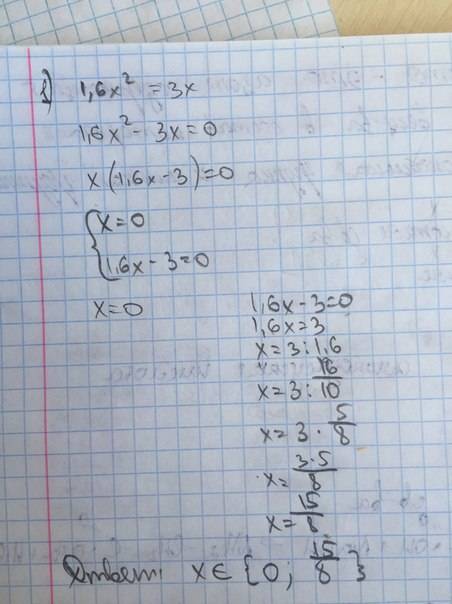 1) 1,6x² = 3x
1,6x² - 3x = 0
x(1,6x - 3) = 0
{ x = 0
1,6x - 3 = 0
x = 0
1,6x - 3 = 0
1,6x = 3
x = 3 : 1,6
x = 3 : 16/10
x = 3 · 5/8
x = 3·5/8
x = 15/8
Ответ: x ∈ {0; 15/8}